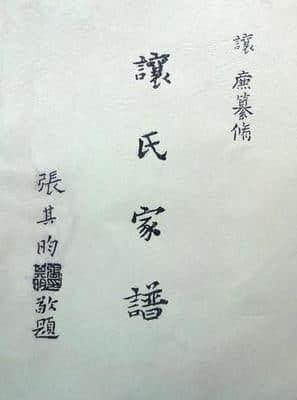 讓 廉纂修
讓氏家譜
張其昀敬題